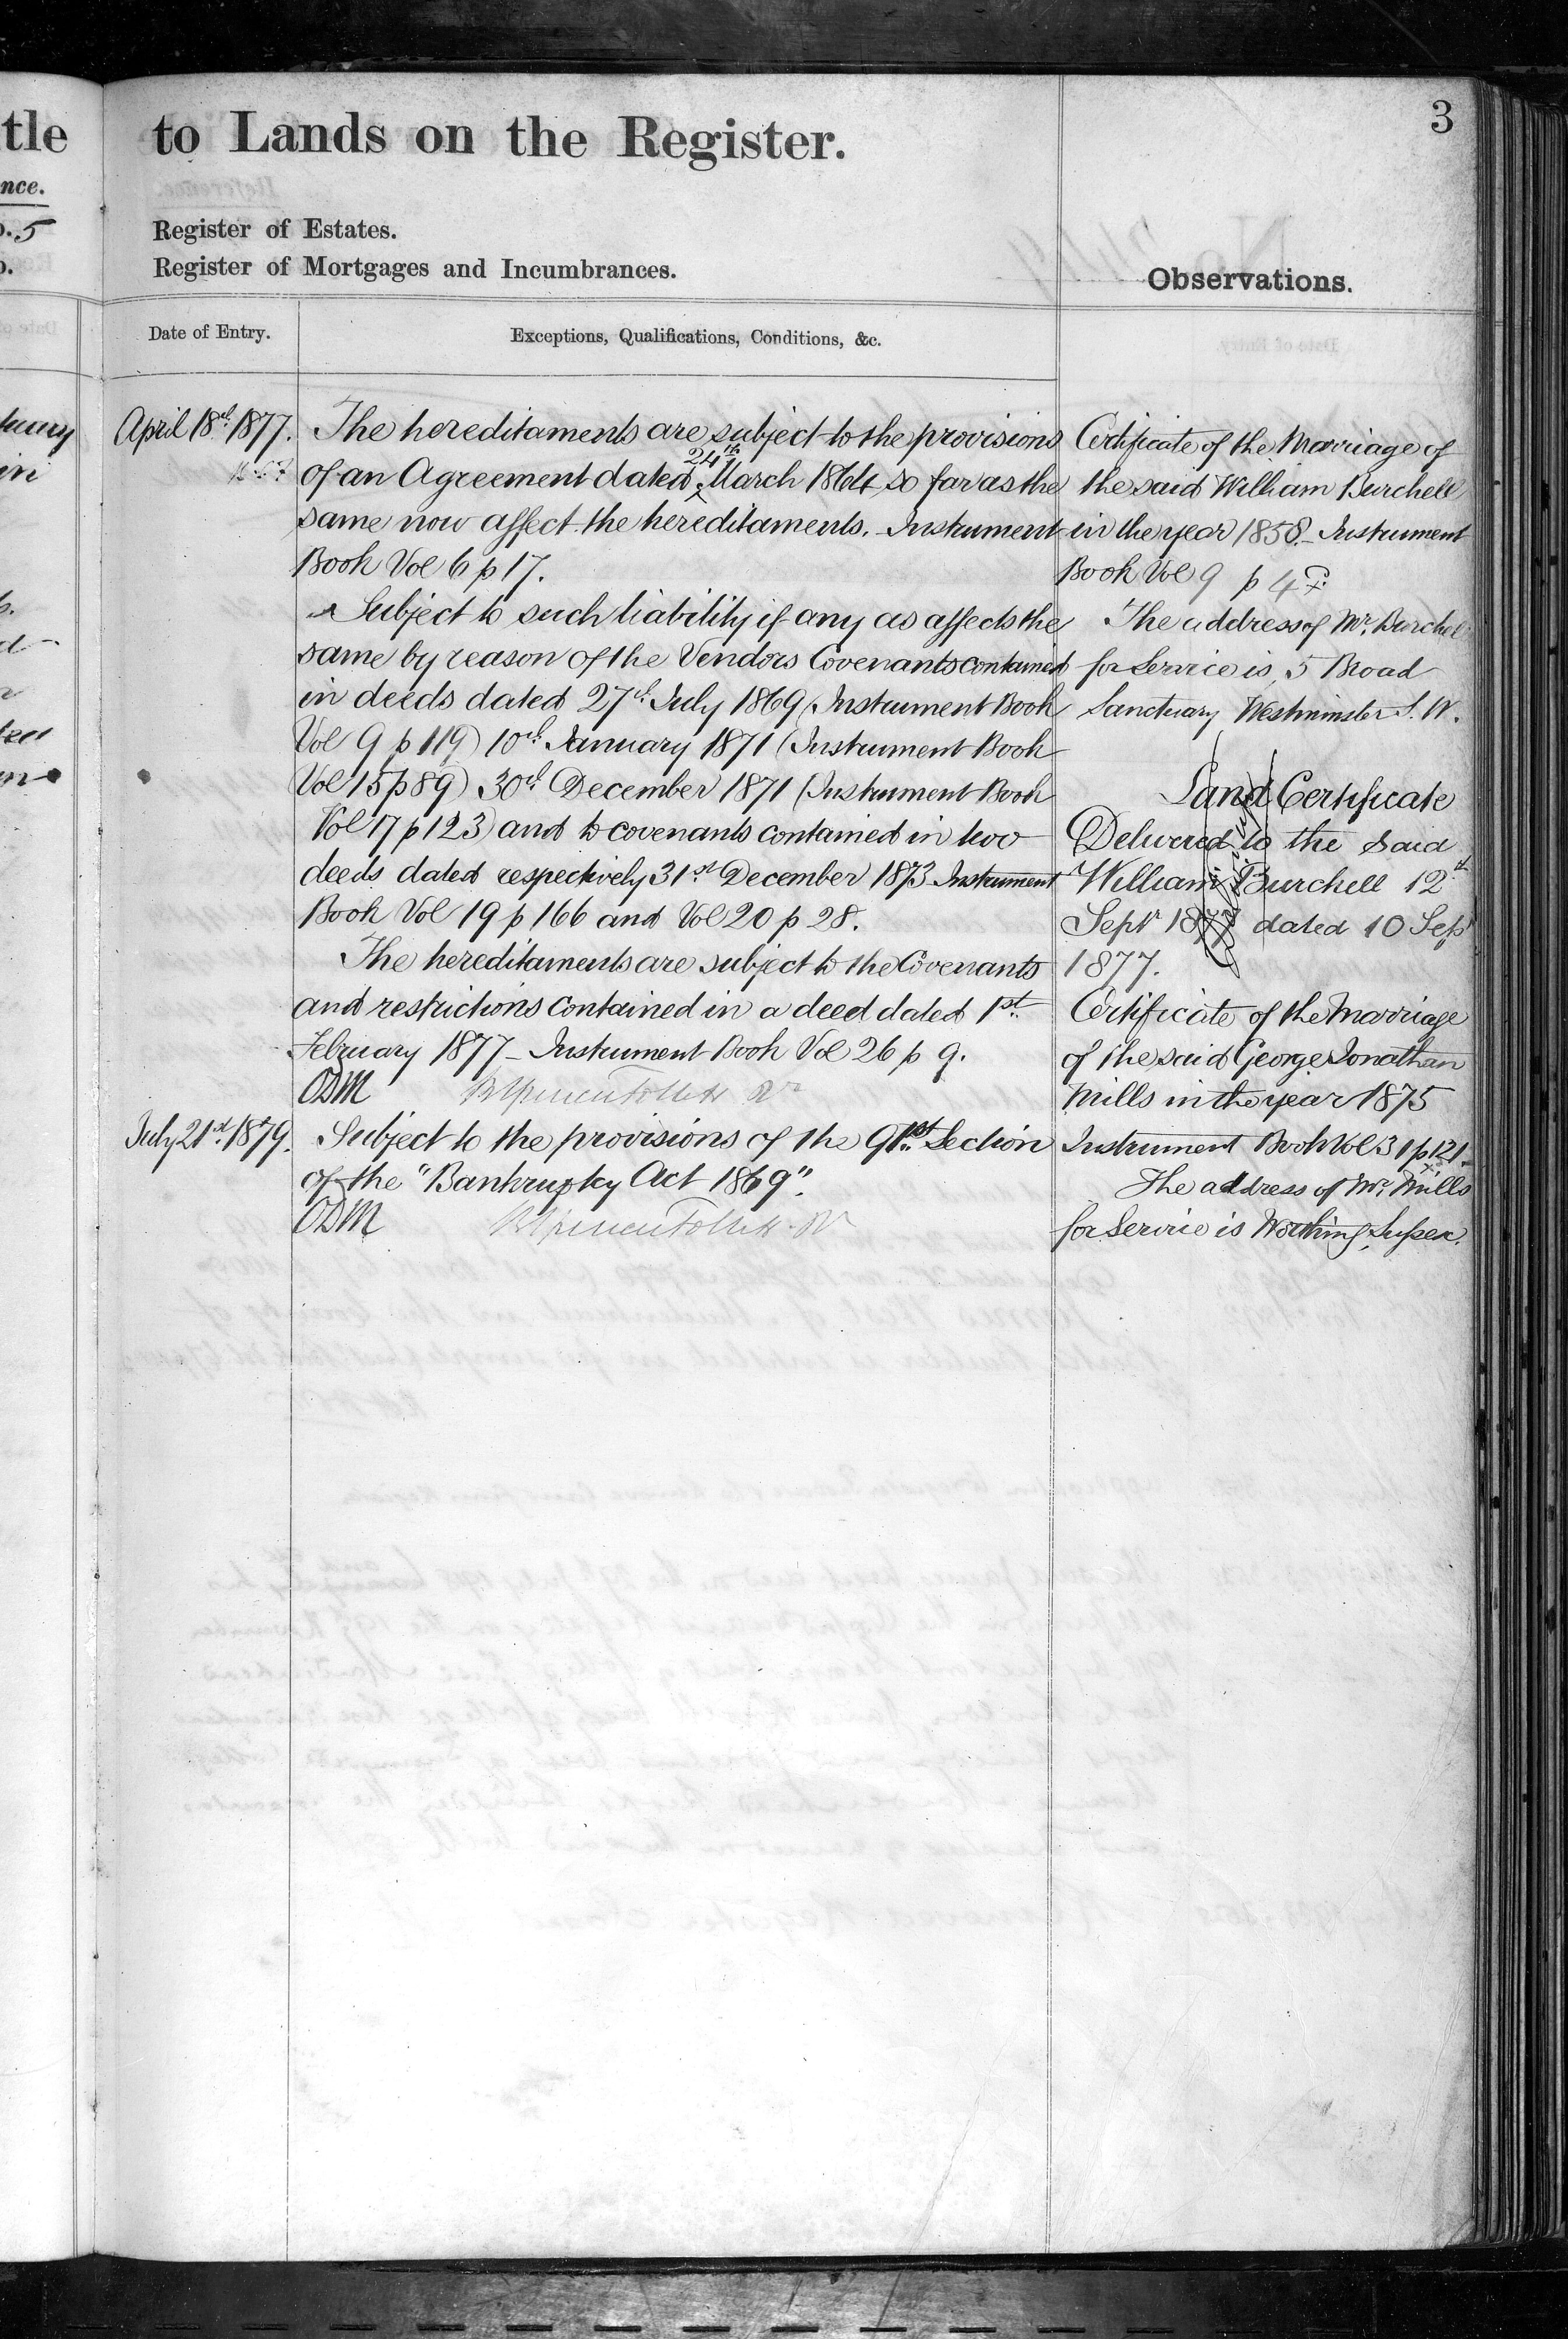 tle
nce.
o. 5
o.
to Lands on the Register.
3
Register of Estates.
Register of Mortgages and Incumbrances.
Observations.
Date of Entry.
Exceptions, Qualifications, Conditions, &c.
April 18th 1877.
The hereditaments are subject to the provisions
of an Agreement dated 24th March 1864 so far as the
same now affect the hereditaments. Instrument
Book Vol 6 p 17.
Subject to such liability if any as affects the
same by reason of the Vendors Covenants contained
in deeds dated 27th July 1869 (Instrument Book
Vol 9 p 119) 10th January 1871 (Instrument Book
Vol 15 p 89) 30th December 1871 (Instrument Book
Vol 17 p 123) and to covenants contained in two
deeds dated respectively 31st December 1873 Instrument
Book Vol 19 p 166 and Vol 20 p 28.
The hereditaments are subject to the Covenants
and restrictions contained in a deed dated 1st
February 1877 - Instrument Book Vol 26 p 9.
ODM
July 21st 1879.
Subject to the provisions of the 91st Section
of the "Bankruptcy Act 1869".
ODM
Certificate of the Marriage of
the said William Burchell
in the year 1858 - Instrument
Book Vol 9 p 4
The address of Mr. Burchell
for Service is 5 Broad
Sanctuary Westminster S.W.
Land Certificate
Delivered to the said
William Burchell 12th
Septr 1877 dated 10 Sepr
1877.
Certificate of the Marriage
of the said George Jonathan
Mills in the year 1875
Instrument Book Vol 31 p 121.
The address of Mr. Mills
for Service is Worthing Sussex.